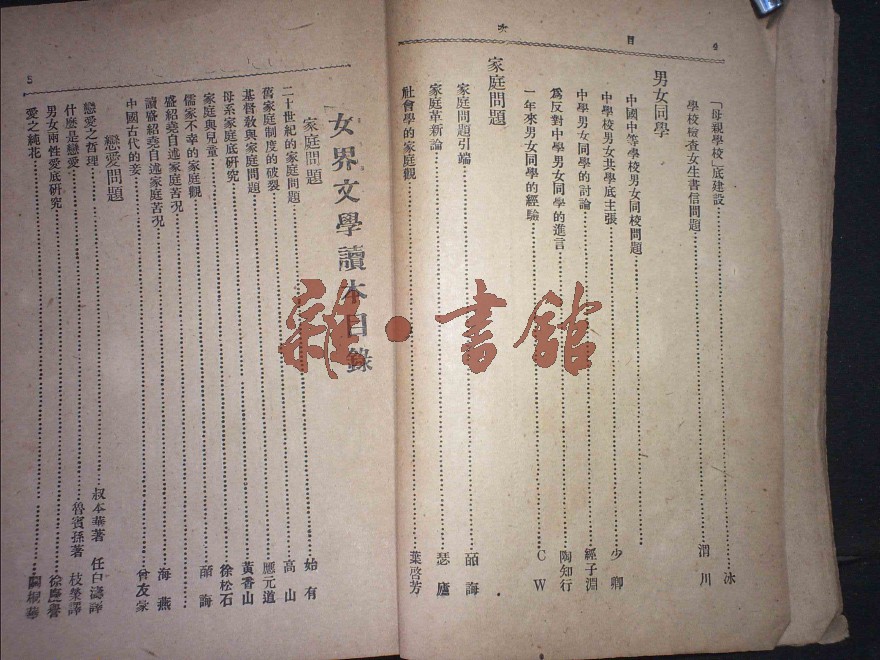 目次
4
「母親學校」底建設……冰
學校檢查女生書信問題……渭川
男女同學
中國中等學校男女同校問題……
中學校男女共學底主張……少卿
中學男女同學的討論……經子淵
爲反對中學男女同學的進言……陶知行
一年來男女同學的經驗……C W
家庭問題
家庭問題引端……䪨海
家庭革新論……瑟廬
社會學的家庭觀……葉啓芳
女界文學讀本目錄
5
家庭問題
二十世紀的家庭問題……始有
舊家庭制度的破裂……高山
基督教與家庭問題……應元道
母系家庭底研究……黃香山
家庭與兒童……徐松石
儒家不幸的家庭觀……
盛紹堯自述家庭苦況……
讀盛紹堯自述家庭苦況……海燕
中國古代的妾……曾友豪
戀愛問題
戀愛之哲理……叔本華著 任白濤譯
什麼是戀愛……魯賓孫著 枝榮譯
男女兩性愛底研究……徐慶譽
愛之純花……
雜·書館